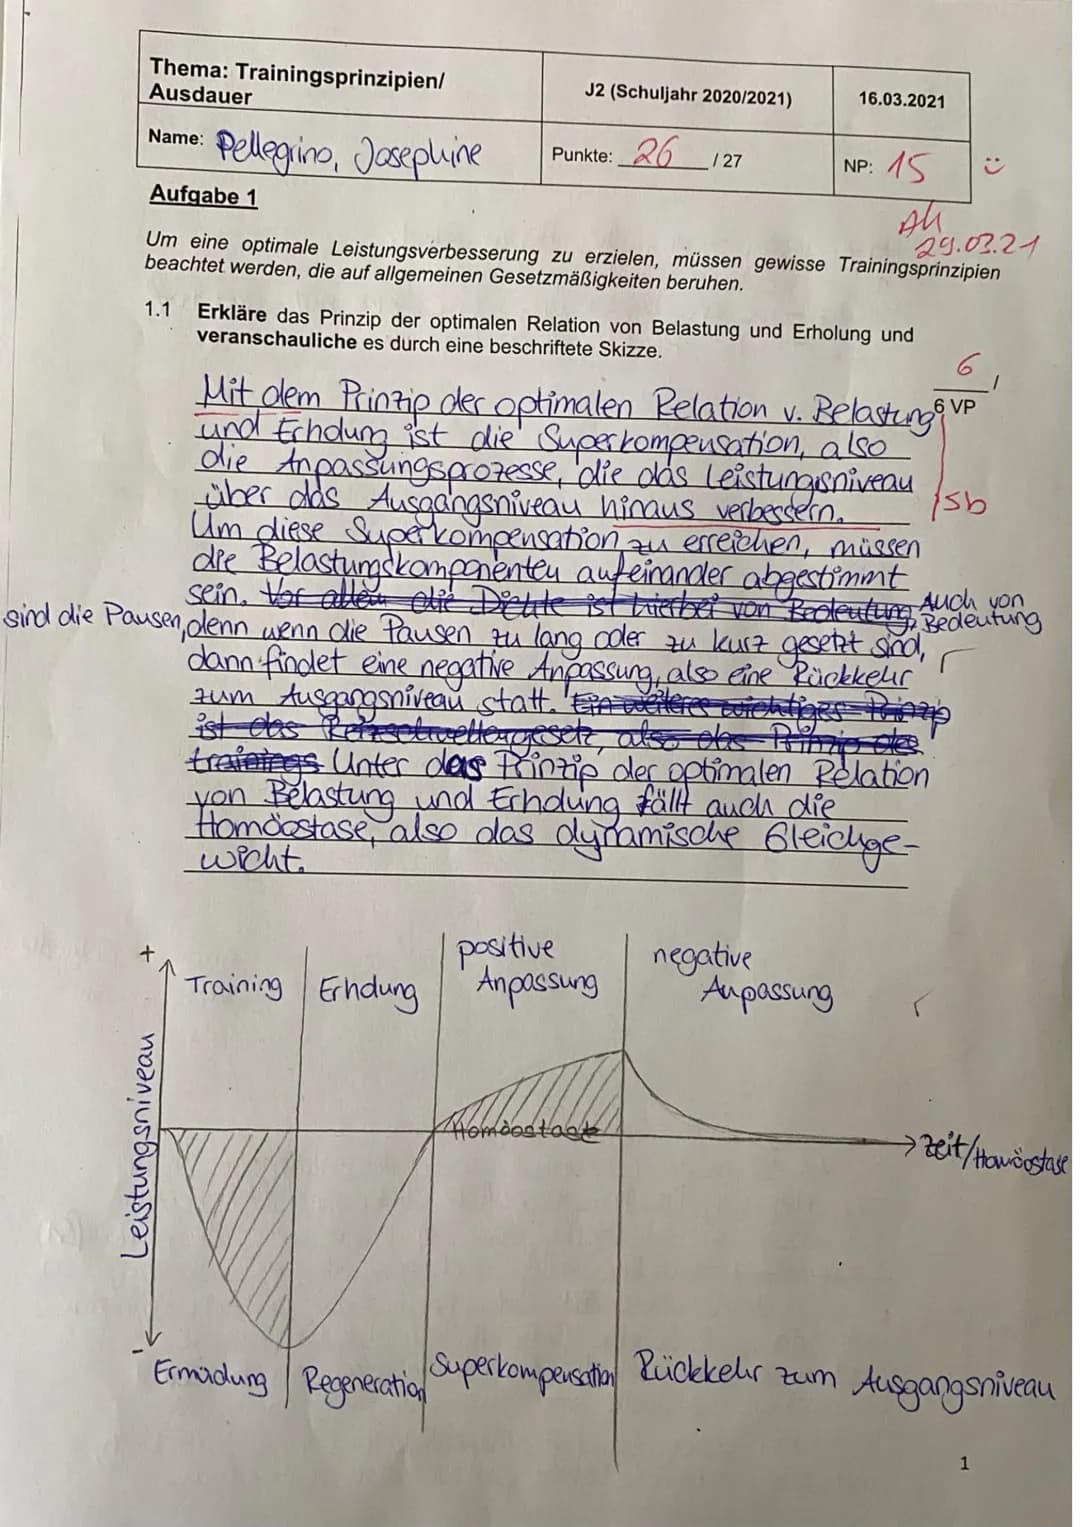 Thema: Trainingsprinzipien/
Ausdauer
J2 (Schuljahr 2020/2021)
16.03.2021
Name: Pellegrino, Josephine
Punkte: 26 / 27
NP: 15
Aufgabe 1
29.03.21
Um eine optimale Leistungsverbesserung zu erzielen, müssen gewisse Trainingsprinzipien
beachtet werden, die auf allgemeinen Gesetzmäßigkeiten beruhen.
1.1 Erkläre das Prinzip der optimalen Relation von Belastung und Erholung und
veranschauliche es durch eine beschriftete Skizze.
6 /
6 VP
Mit dem Prinzip der optimalen Relation v. Belastung
und Erholung ist die Superkompensation, also
die Anpassungsprozesse, die das Leistungsniveau
über das Ausgangsniveau hinaus verbessern.
Sb
Um diese Superkompensation zu erreichen, müssen
die Belastungskomponenten aufeinander abgestimmt
sein. Vor allem die Dichte ist hierbei von Bedeutung, Auch von
Bedeutung
sind die Pausen, denn wenn die Pausen zu lang oder zu kurz gesetzt sind,
dann findet eine negative Anpassung, also eine Rückkehr
zum Ausgangsniveau statt. Ein weiteres wichtiges Prinzip
ist das Reizschwellengesetz, also das Prinzip des
trainings Unter das Prinzip der optimalen Relation
von Belastung und Erholung fällt auch die
Homöostase, also das dynamische Gleichge-
wicht.
+
Training
Erholung
positive
Anpassung
negative
Anpassung
Leistungsniveau
Homöostase
Zeit/Homöostase
-
Ermüdung
Regeneration
Superkompensation
Rückkehr zum Ausgangsniveau
1